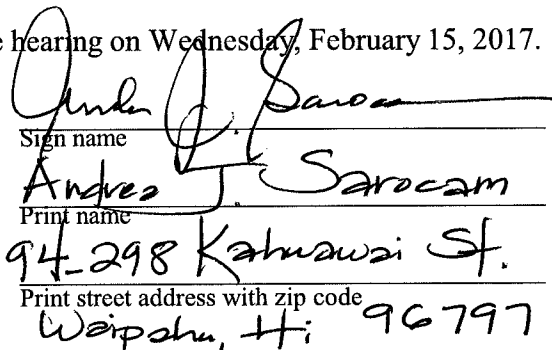 e hearing on Wednesday, February 15, 2017.
Sign name
Andrea J. Sarocam
Print name
94-298 Kahuawai St.
Print street address with zip code
Waipahu, Hi 96797